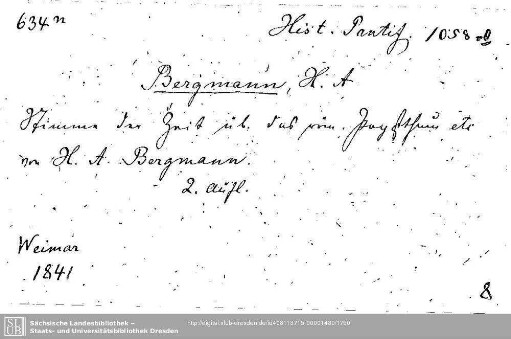 634n
Hist. Pontif. 1058
Bergmann, H. A
Stimme der Zeit üb. das röm. Papstthum etc
von H. A. Bergmann
2. Aufl.
Weimar
1841
8
SLUB
Sächsische Landesbibliothek –
Staats- und Universitätsbibliothek Dresden